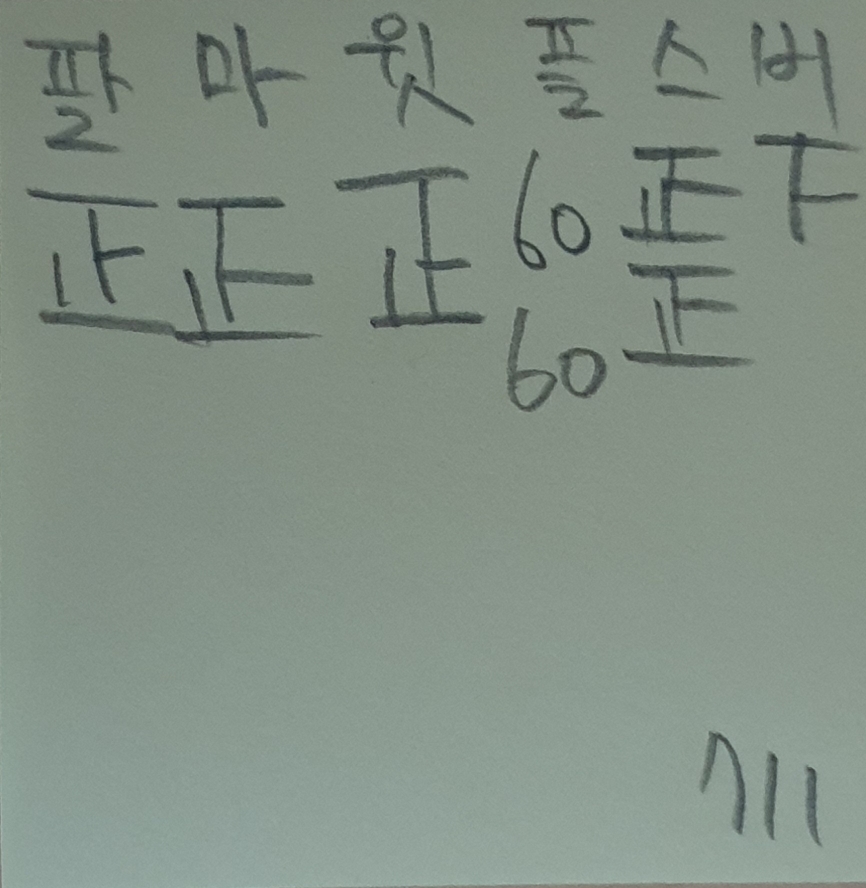 팔 마 윗 플 스 버
正 正 正 60 正 下
60 正
711